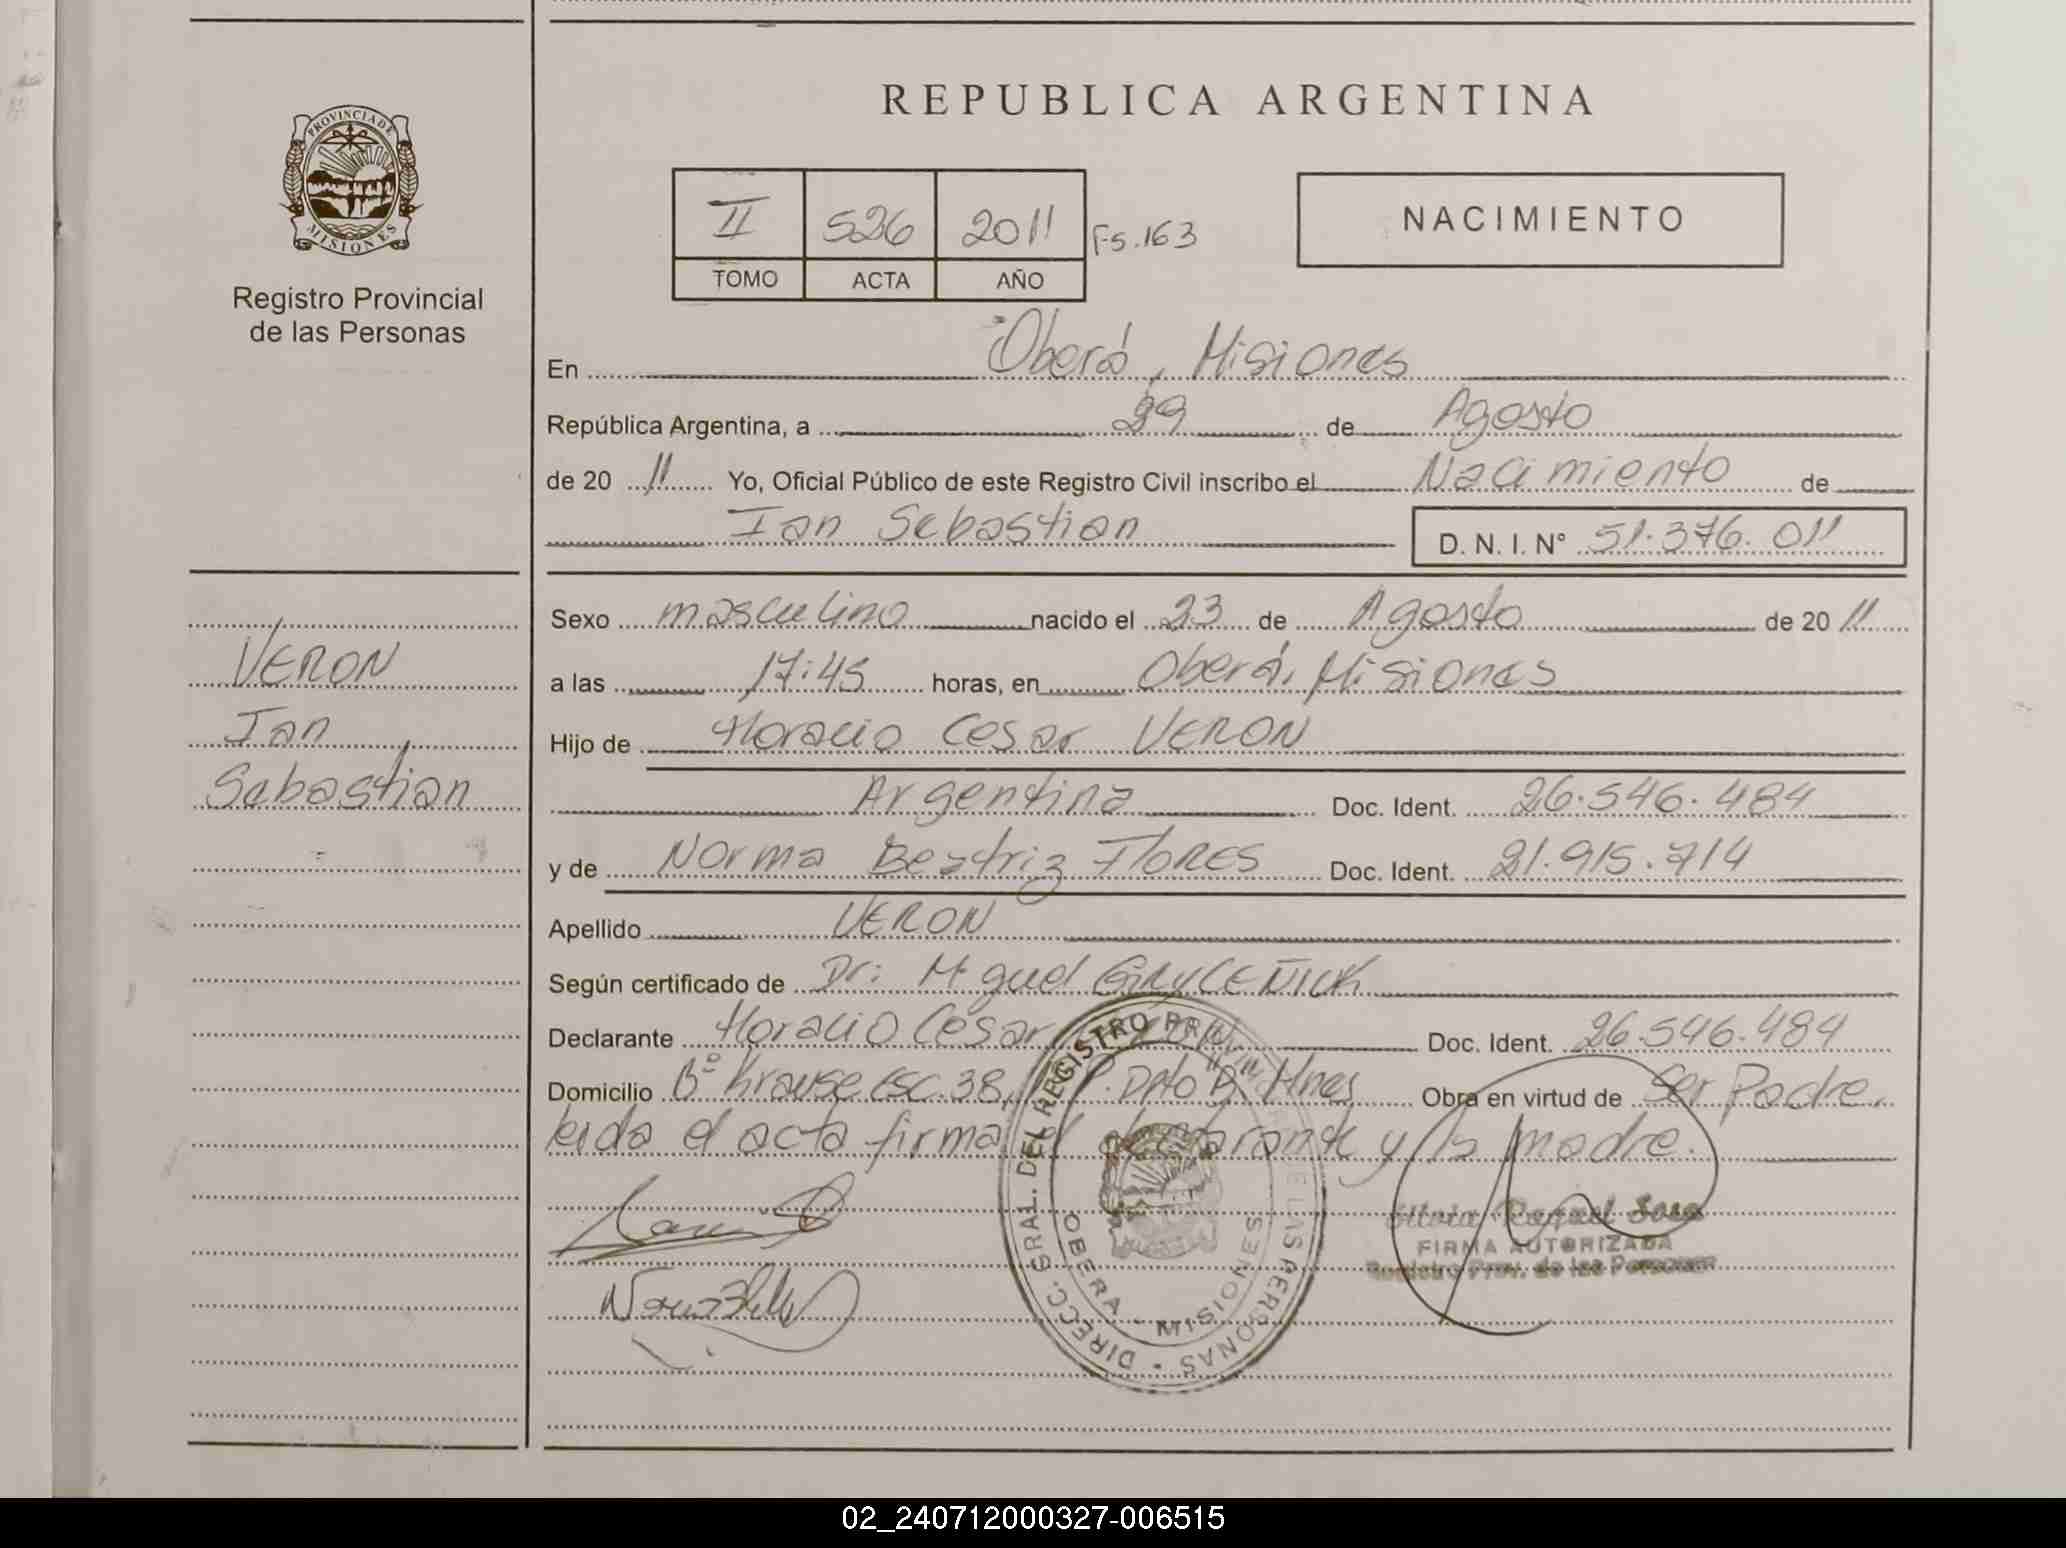 REPUBLICA ARGENTINA
PROVINCIA DE MISIONES
Registro Provincial
de las Personas
II 526 2011 Fs. 163
TOMO ACTA AÑO
NACIMIENTO
En Oberá, Misiones
República Argentina, a 29 de Agosto
de 2011 Yo, Oficial Público de este Registro Civil inscribo el Nacimiento de
Ian Sebastian D. N. I. N° 51.376.011
VERON
Ian
Sebastian
Sexo masculino nacido el 23 de Agosto de 2011
a las 17:45 horas, en Oberá, Misiones
Hijo de Horacio Cesar VERON
Argentina Doc. Ident. 26.546.484
y de Norma Beatriz FLORES Doc. Ident. 21.915.714
Apellido VERON
Según certificado de Dr: Miguel
Declarante Horacio Cesar Doc. Ident. 26.546.484
Domicilio B° Krause esc. 38, Obra en virtud de Ser Padre.
leida el acta firma el declarante y la madre.
DIRECC. GRAL. DEL REGISTRO PROVINCIAL DE LAS PERSONAS
OBERA - MISIONES
Silvia Raquel Sosa
FIRMA AUTORIZADA
Registro Prov. de las Personas
02_240712000327-006515